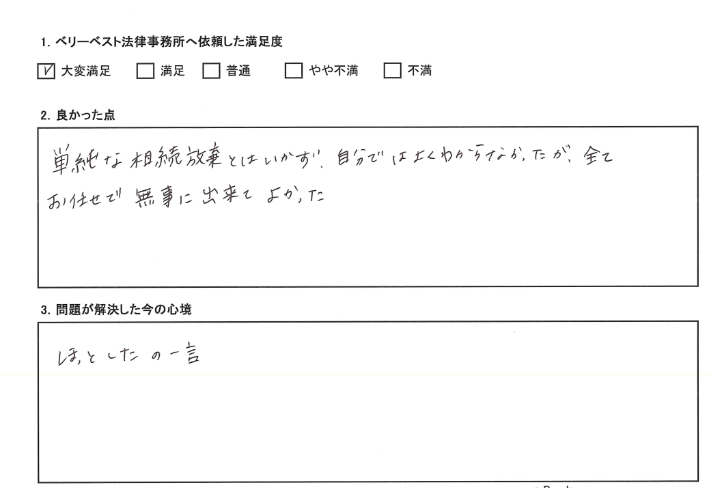 1. ベリーベスト法律事務所へ依頼した満足度
大変満足 満足 普通 やや不満 不満
2. 良かった点
単純な相続放棄とはいかず、自分ではよくわからなかったが、全て
お任せで無事に出来てよかった
3. 問題が解決した今の心境
ほっとしたの一言